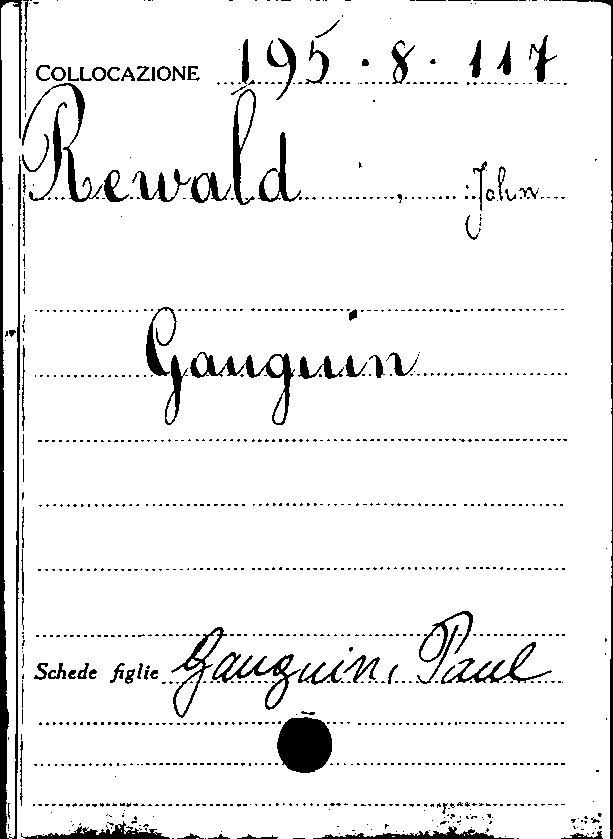 COLLOCAZIONE 195 . 8 . 117
Rewald , John
Gauguin
Schede figlie Gauguin, Paul